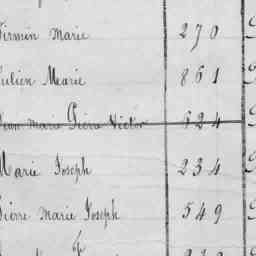 Firmin Marie 270
Julien Marie 861
Jean Marie Pierre Victor 624
Marie Joseph 234
Pierre Marie Joseph 549